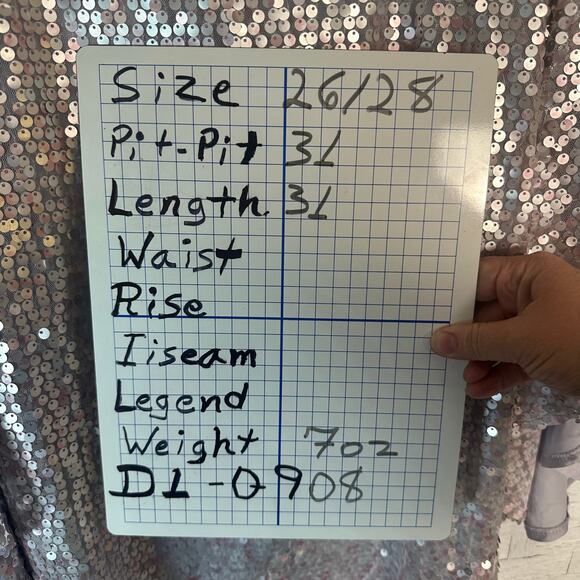 Size 26/28
Pit-Pit 31
Length 31
Waist
Rise
Iiseam
Legend
Weight 7oz
D1-0908